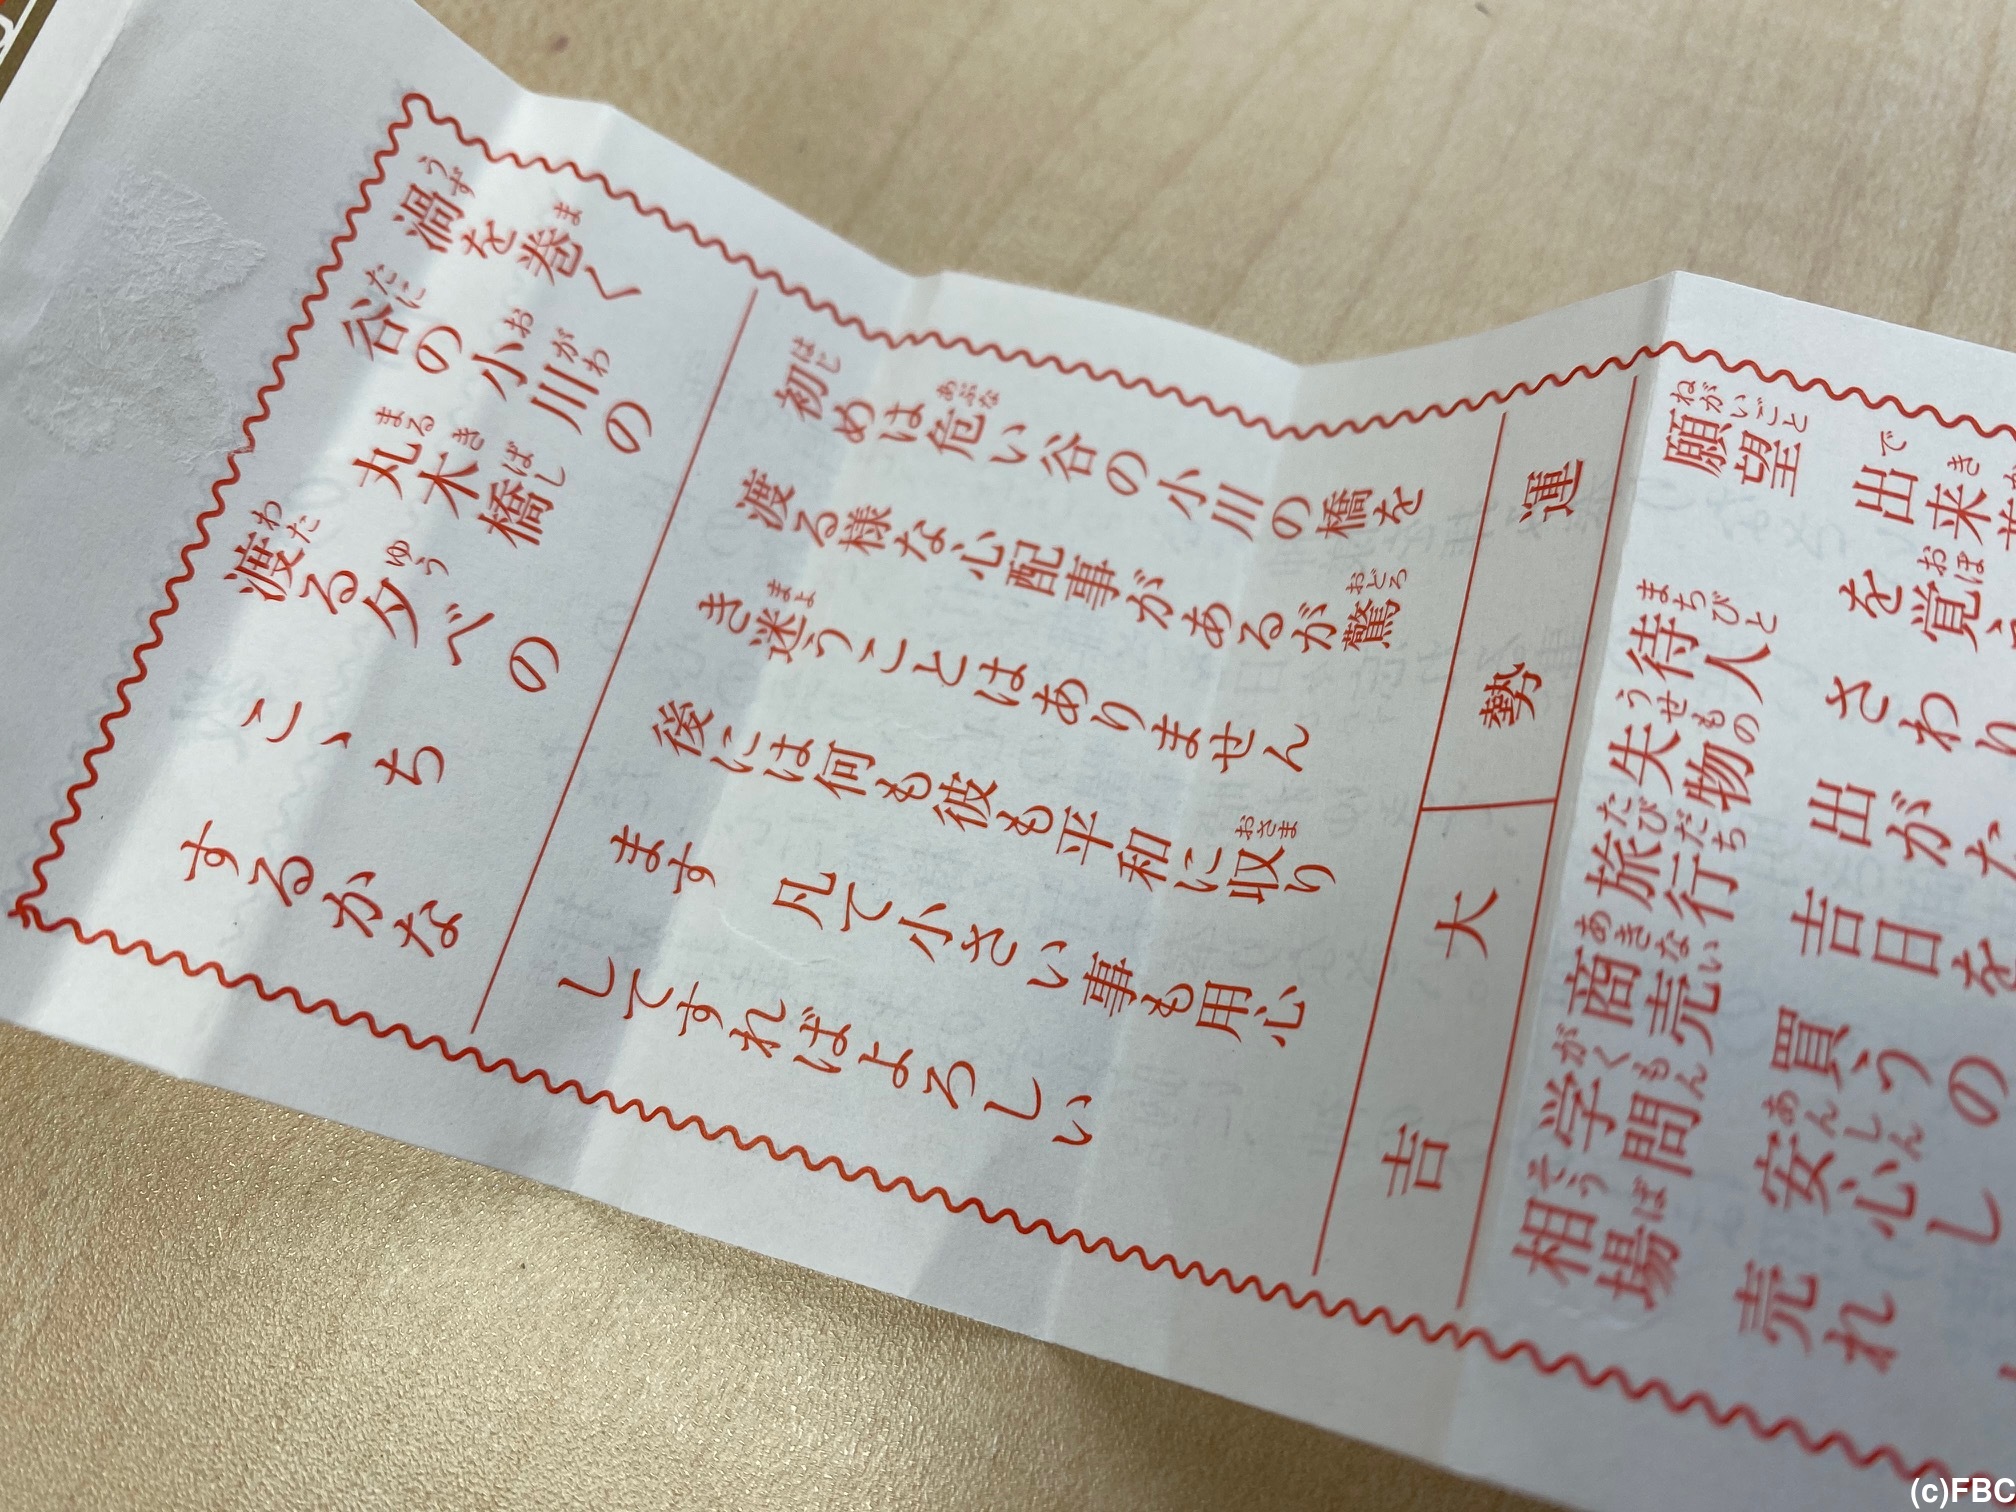 渦を巻く
谷の小川の
丸木橋
渡る夕べの
こゝち
するかな
初めは危い谷の小川の橋を
渡る様な心配事があるが驚
き迷うことはありません
後には何も彼も平和に収り
ます 凡て小さい事も用心
してすればよろしい
運勢
大吉
願望 出来
を覚
待人 さわり
失物 出がた
旅行 吉日を
商売 買うの
学問 安心し
相場 売れ
(c)FBC